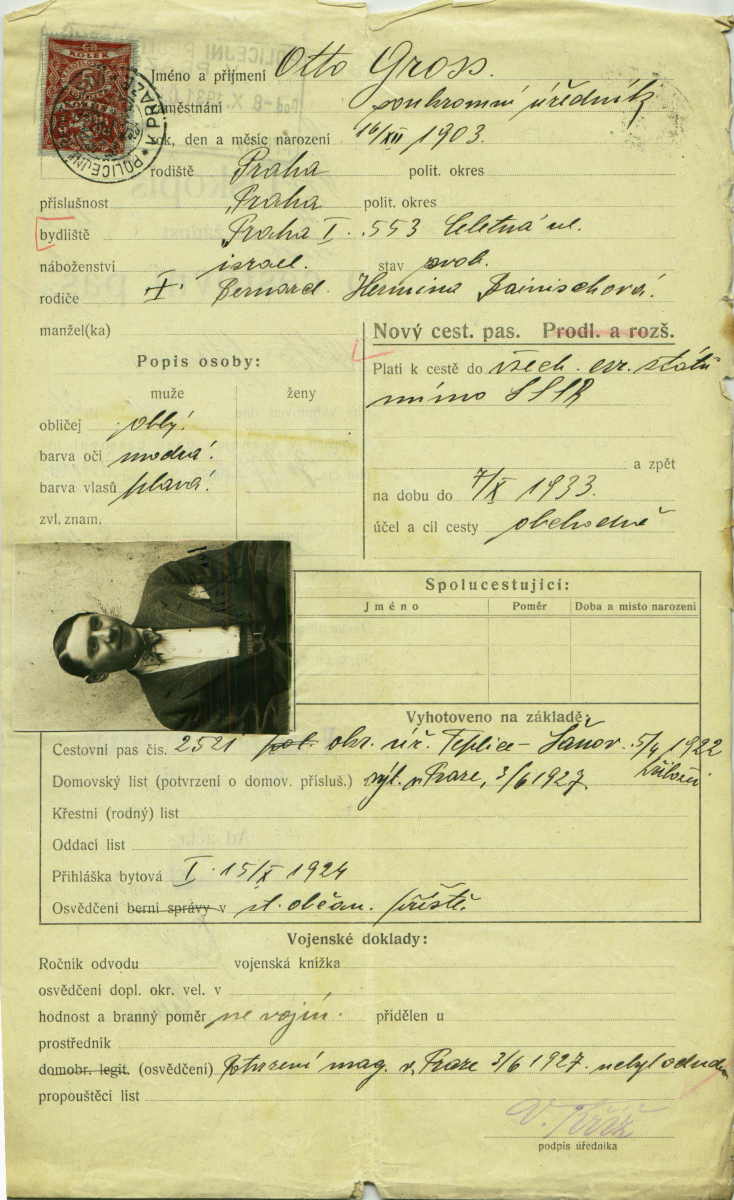 KOLEK
5
POLICEJNÍ
V PRAZE
Jméno a příjmení Otto Gross.
zaměstnání soukromní úředník
rok, den a měsíc narození 16/XII 1903.
rodiště Praha polit. okres
příslušnost Praha polit. okres
bydliště Praha I. 553 Celetná ul.
náboženství israel. stav svob.
rodiče Bernard. Hermina Bainischová.
manžel(ka)
Nový cest. pas. Prodl. a rozš.
Popis osoby:
Platí k cestě do všech. evr. států
mimo SSSR
muže ženy
obličej oblý.
barva očí modrá.
barva vlasů plavá.
zvl. znam.
a zpět
na dobu do 7/X 1933.
účel a cíl cesty obchodně
Spolucestující:
Jméno Poměr Doba a místo narození
Vyhotoveno na základě:
Cestovní pas čís. 2521 pol. okr. úř. Teplice - Šanov. 5/4 1922
Domovský list (potvrzení o domov. přísluš.) výt. v Praze, 3/6 1927.
Křestní (rodný) list
Oddací list
Přihláška bytová I. 15/X 1924
Osvědčení berní správy v st. občan. příště.
Vojenské doklady:
Ročník odvodu vojenská knížka
osvědčení dopl. okr. vel. v
hodnost a branný poměr ne vojín. přidělen u
prostředník
domobr. legit. (osvědčení) Potvrzení mag. v Praze 3/6 1927. nebyl
propouštěcí list
podpis úředníka